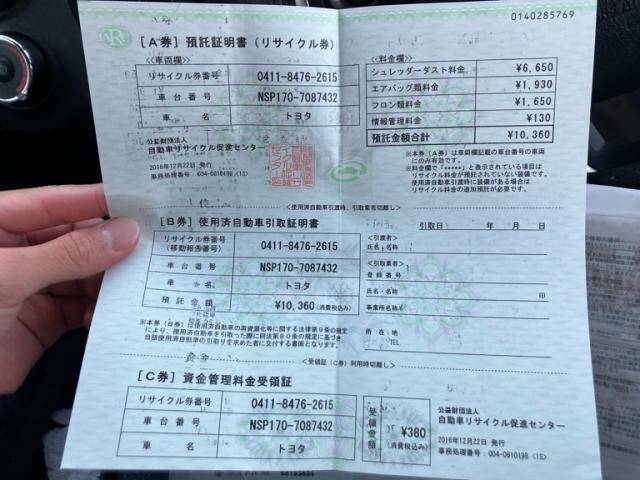 0140285769
[A券] 預託証明書（リサイクル券）
＜車両欄＞
リサイクル券番号 0411-8476-2615
車台番号 NSP170-7087432
車名 トヨタ
公益財団法人
自動車リサイクル促進センター
2016年12月22日 発行
事務処理番号 004-0810198 (1S)
＜料金欄＞
シュレッダーダスト料金 ¥6,650
エアバッグ類料金 ¥1,930
フロン類料金 ¥1,650
情報管理料金 ¥130
預託金額合計 ¥10,360
※本券（A券）は車両欄記載の車台番号の車両
にのみ有効です。
※料金欄で「*****」と表示されている項目は
リサイクル料金が預託されていない装備です。
使用済自動車引渡時に装備がある場合は
リサイクル料金の追加預託が必要です。
＜使用済自動車引渡時、引取業者切離し＞
[B券] 使用済自動車引取証明書
リサイクル券番号
(移動報告番号) 0411-8476-2615
車台番号 NSP170-7087432
車名 トヨタ
預託金額 ¥10,360(消費税込み)
※本券（B券）は使用済自動車の再資源化等に関する法律第9条の規定
により、使用済自動車を引取った際に同法第80条の規定に基づき
当該使用済自動車の引取りを求めた者に交付する書面となります。
引取日： 年 月 日
＜引渡者＞
氏名・名称：
＜引取業者＞
登録番号：
氏名・名称： 印
事業所名称：
所在地：
TEL
＜受領証（C券）利用時切離し＞
[C券] 資金管理料金受領証
リサイクル券番号 0411-8476-2615
車台番号 NSP170-7087432
車名 トヨタ
受領金額 ¥380
(消費税込み)
公益財団法人
自動車リサイクル促進センター
2016年12月22日 発行
事務処理番号 004-0810198 (1S)